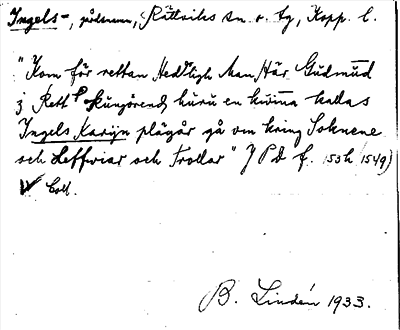 Ingels-, gårdsnamn, Rättviks sn. o. tg, Kopp. l.
"Kom för rettan Hedrligh Man Här Gudmūd
j Rettp Kungörend, huru en kuīna kallas
Ingels Karijn plägår gå om kring Soknene
och Leffwiar och Trollar" JPD f. 153 h (1549)
W Coll.
B. Lindén 1933.